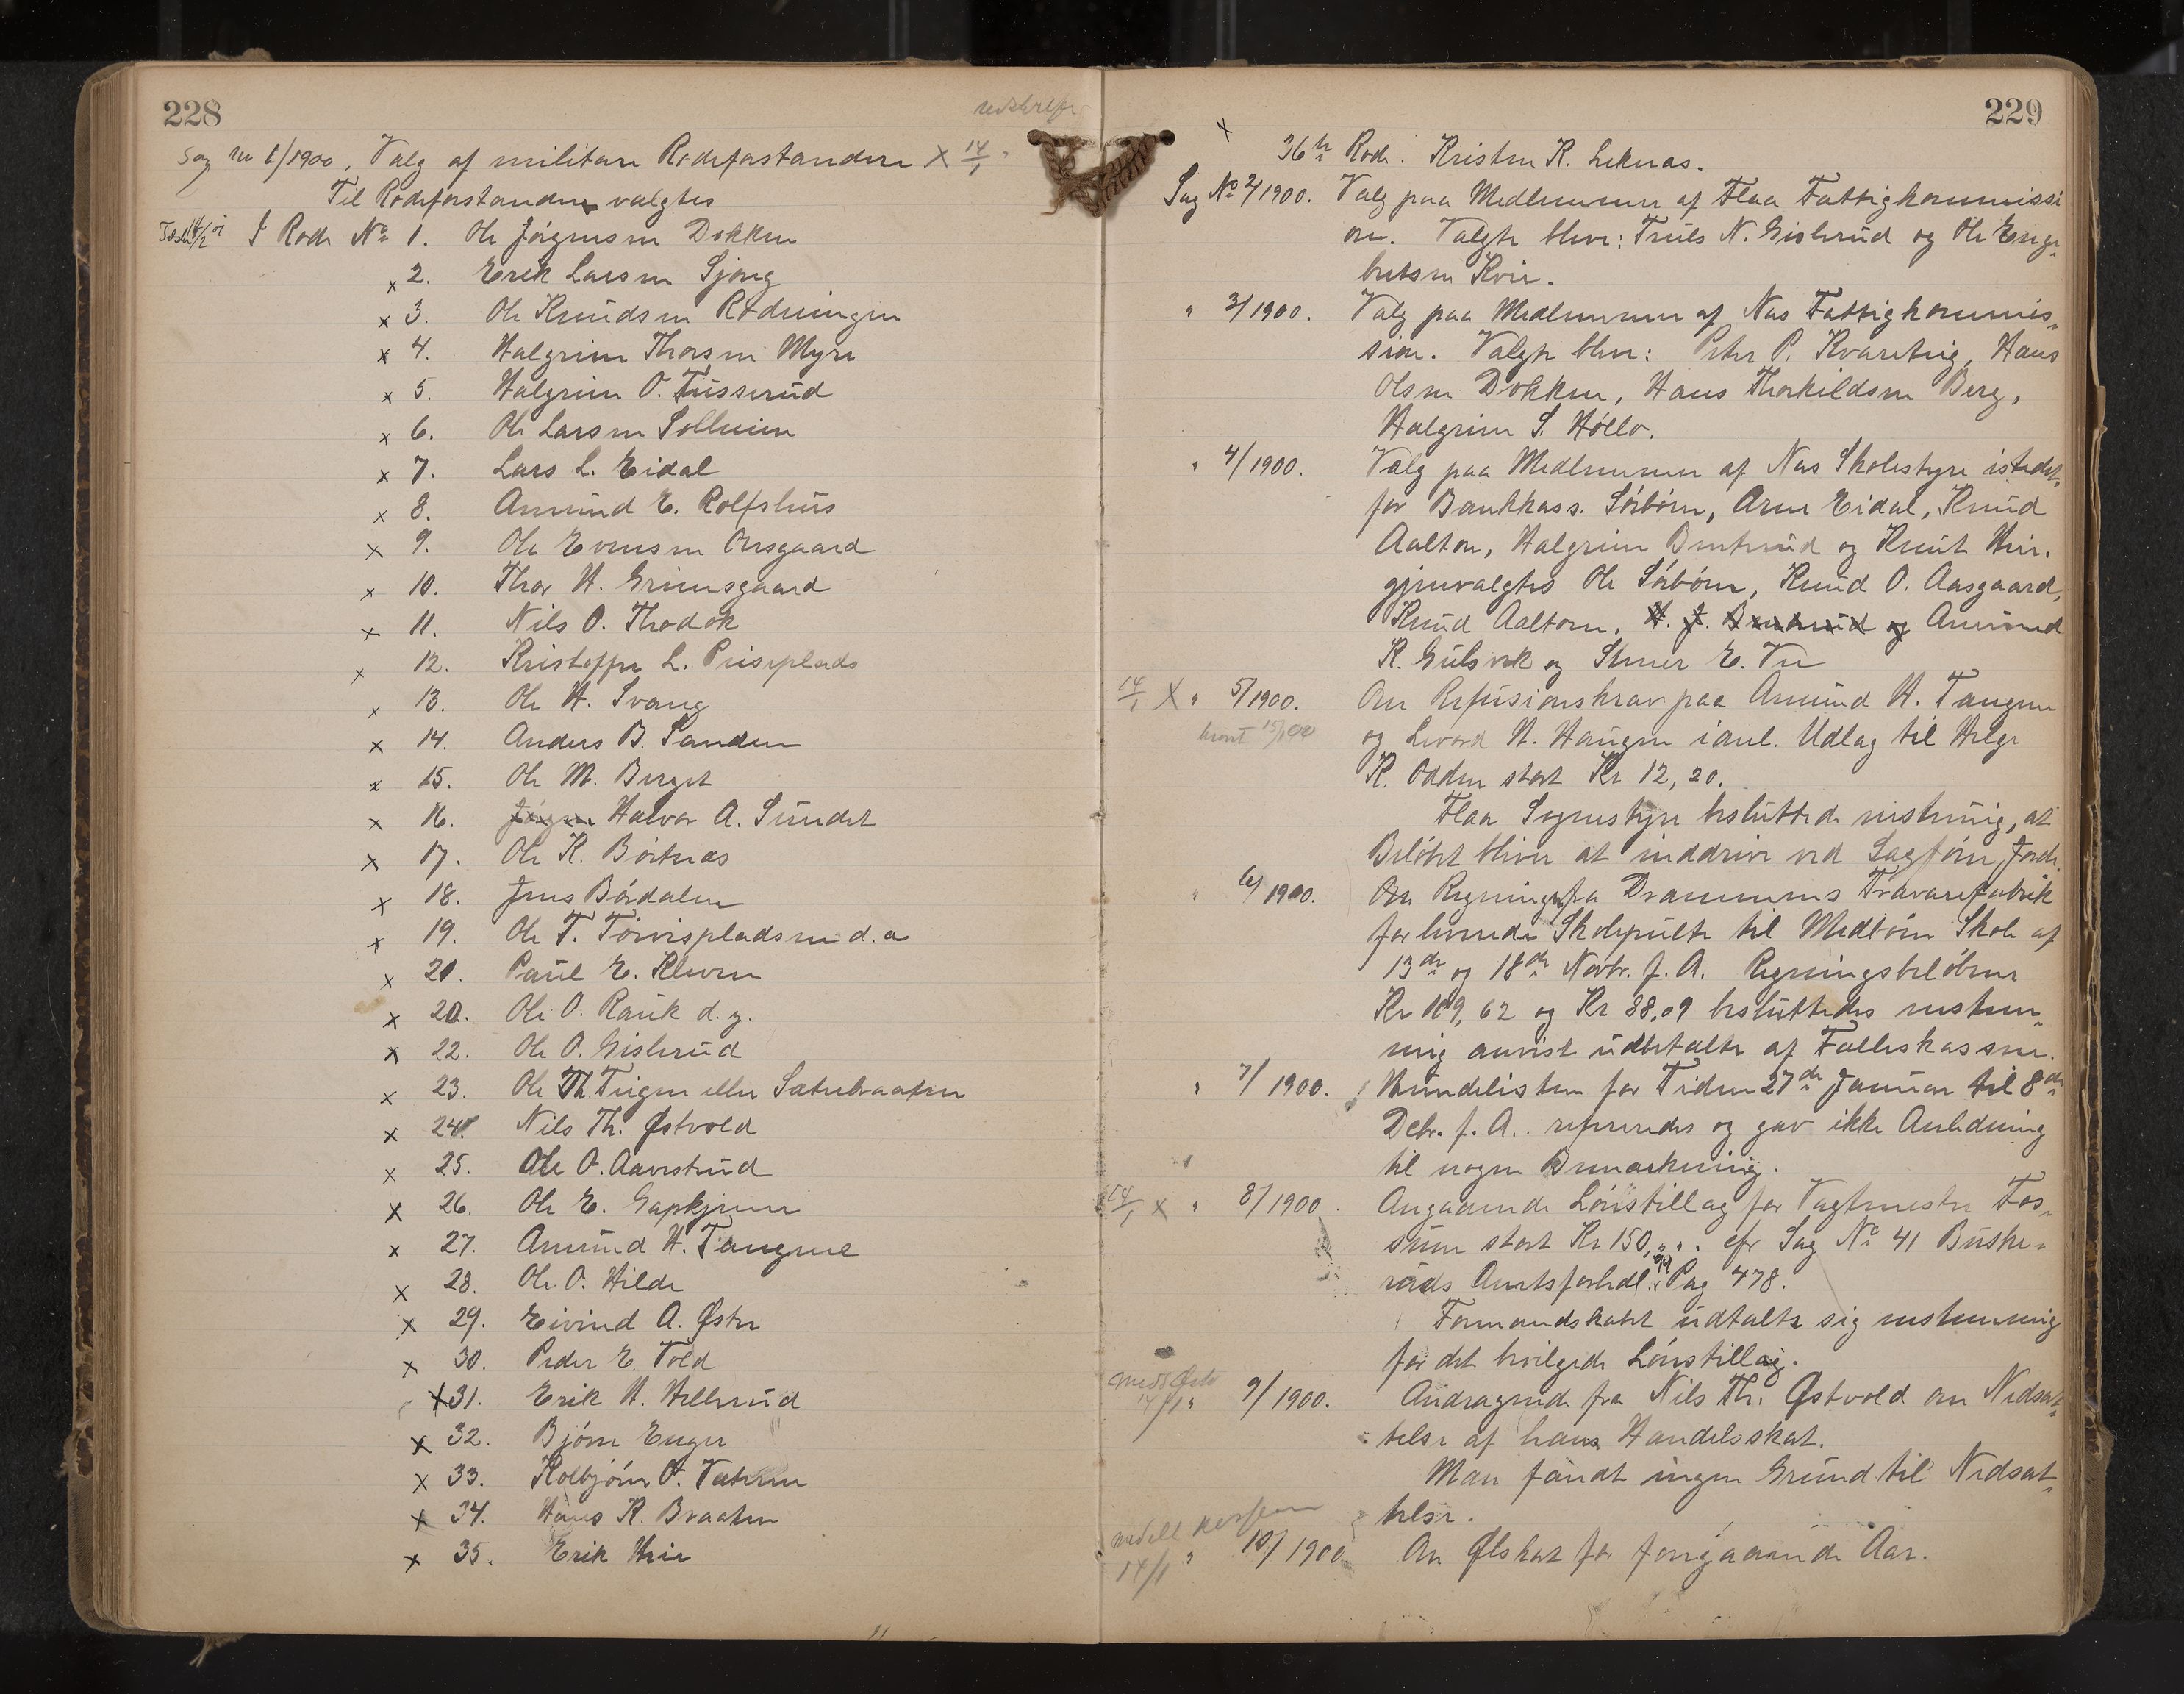 228
Sag No 1/1900. Valg af militære Rodeforstandere X 14/1
Til Rodeforstandere valgtes
I Rode No 1. Ole Jörgensen Dokken
x 2. Erik Larsen Sjong
x 3. Ole Knudsen Rödningen
x 4. Halgrim Thorsen Myre
x 5. Halgrim O. Tusserud
x 6. Ole Larsen Solheim
x 7. Lars L. Eidal
x 8. Amund E. Rolfshus
x 9. Ole Evensen Onsgaard
x 10. Thor H. Grimsgaard
x 11. Nils O. Thodok
x 12. Kristoffer L. Prisplads
x 13. Ole H. Svang
x 14. Anders B. Sanden
x 15. Ole M. Berget
x 16. Jörgen Halvor A. Sundet
x 17. Ole K. Börtnæs
x 18. Jens Bårdalen
x 19. Ole T. Törvispladsen d.æ
x 20. Paul E. Kleven
x 20. Ole O. Rauk d.y.
x 22. Ole O. Gislerud
x 23. Ole Th. Trigen eller Sæterbraaten
x 24. Nils Th. Østvold
x 25. Ole O. Aavestrud
x 26. Ole E. Gapkjenn
x 27. Amund H. Tangene
x 28. Ole O. Hilde
x 29. Eivind A. Østre
x 30. Peder E. Vold
x 31. Erik H. Hellerud
x 32. Björn Enger
x 33. Kolbjörn O. Vætern
x 34. Hans K. Braaten
x 35. Erik Hvie
229
x 36te Rode. Kristen K. Leknæs.
Sag No 2/1900. Valg paa Medlemmer af Flaa Fattigkommissi
on. Valgte blev: Truls N. Gislerud og Ole Enge„
bretsen Kvie.
" 3/1900. Valg paa Medlemmer af Næs Fattigkommis„
sion. Valgte blev: Peter P. Kvarsteig, Hans
Olsen Dokken, Hans Thorkildsen Berg,
Halgrim S. Höllo.
" 4/1900. Valg paa Medlemmer af Næs Skolestyre istedet„
for Bankkass. Sörbön, Arne Eidal, Knud
Aalton, Halgrim Bentrud og Knut Hvie.
gjenvalgtes Ole Sörbön, Knud O. Aasgaard,
Knud Aalton, H. J. Bentrud og Amund
K. Gulsvik og Stener E. Vie
14/1 X " 5/1900. Om Refusionskrav paa Amund H. Tangene
og Levord H. Haugen i anl. Udlæg til Helge
K. Odden stort Kr 12,20.
Flaa Sognestyre besluttede enstemig, at
Belöbet bliver at inddrive ved Sagförer Jorde.
" 6/1900. Om Regninger fra Drammens Trævarefabrik
for leverede Skolepulte til Medbön Skole af
13de og 18de Novbr. f. A. Regningsbelöbene
Kr 109,62 og Kr 38,09 besluttedes enstem„
mig anvist udbetalte af Felleskassen.
" 7/1900. Hundelisten for Tiden 27de Januar til 8de
Debr. f. A. refereredes og gav ikke Anledning
til nogen Bemærkning.
14/1 X " 8/1900. Angaaende Lönstillæg for Vagtmester Fos„
sum stort Kr 150,„. cfr Sag No 41 Buske„
ruds Amtsforhdl. 99 Pag 478.
Formandskabet udtalte sig enstemmig
for det bevilgede Lönstillæg.
14/1 " 9/1900. Andragende fra Nils Th. Østvold om Nedsæt„
telse af hans Handelsskat.
Man fandt ingen Grund til Nedsæt„
telse.
14/1 " 10/1900. Om Ølskat for foregaaende Aar.